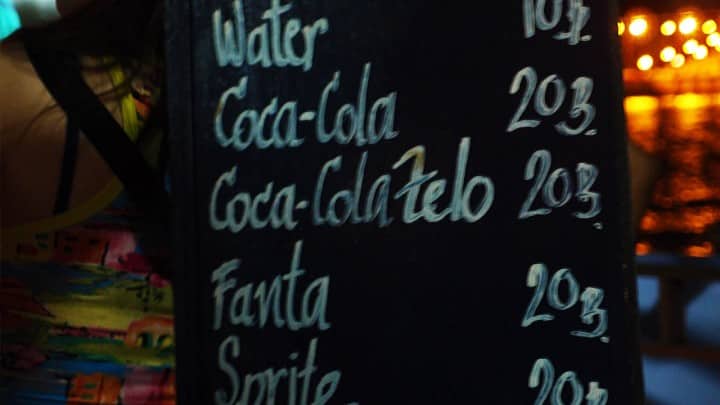 Water 10B.
Coca-Cola 20B.
Coca-Cola Zelo 20B.
Fanta 20B.
Sprite 20B